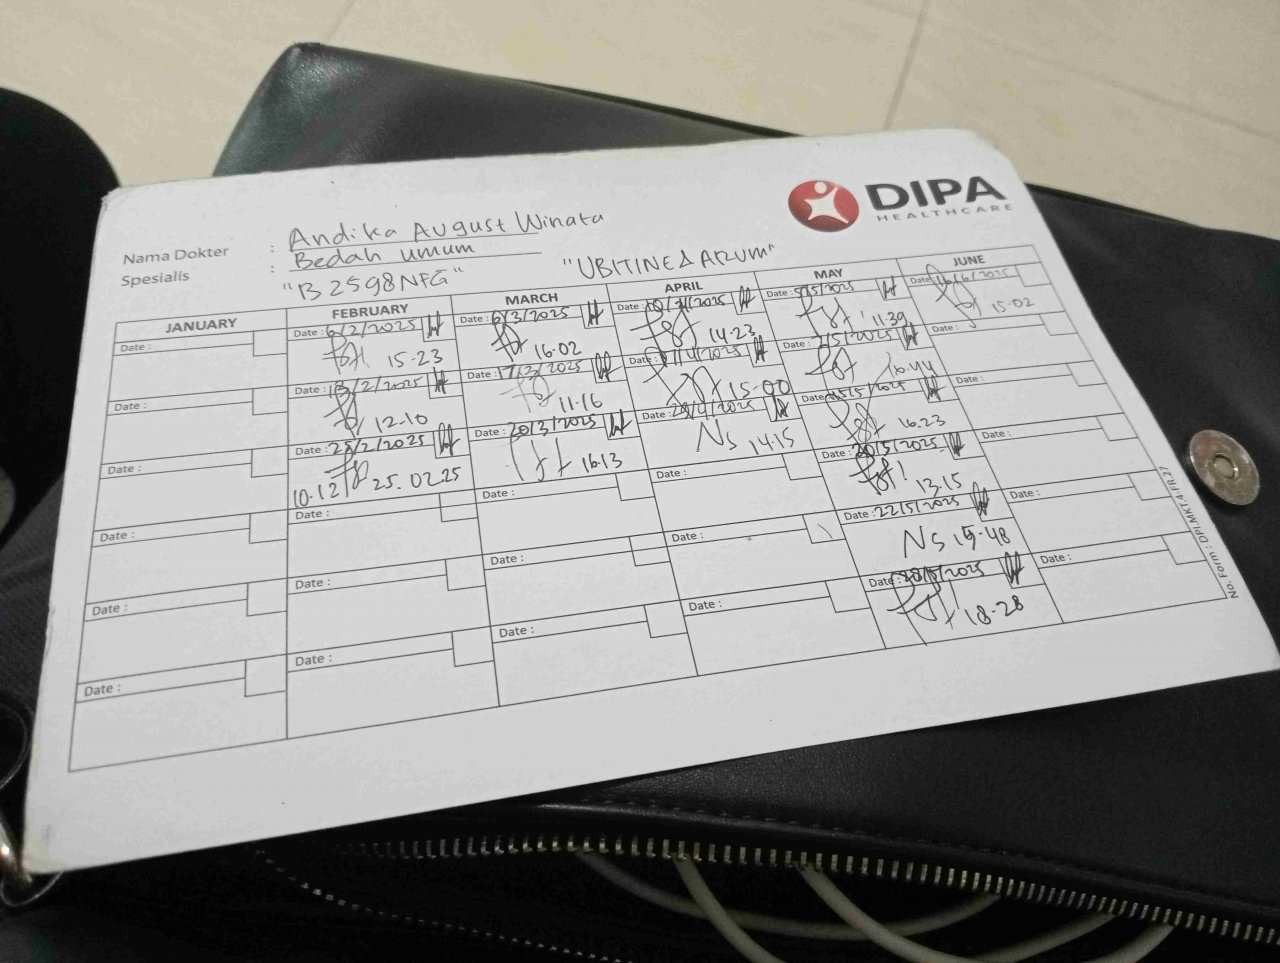 DIPA
HEALTHCARE
Nama Dokter : Andika August Winata
Spesialis : Bedah umum
"B 2598 NFG" "UBITINE & ARUM"
JANUARY FEBRUARY MARCH APRIL MAY JUNE
Date :
Date :
Date :
Date :
Date :
Date :
Date : 6/2/2025
15-23
Date : 13/2/2025
12-10
Date : 25/2/2025
10.12 25.02.25
Date :
Date :
Date :
Date : 6/3/2025
16-02
Date : 17/3/2025
11-16
Date : 20/3/2025
16.13
Date :
Date :
Date :
Date :
14-23
Date :
15-00
Date : 29/4/2025
Ns 14.15
Date :
Date :
Date :
Date : 5/5/2025
11.39
Date :
10.44
Date :
16.23
Date : 20/5/2025
13.15
Date : 22/5/2025
Ns 15-48
Date : 28/5/2025
18-28
Date : 16/6/2025
15-02
Date :
Date :
Date :
Date :
Date :
No. Form : DPI.MKT-4-FR.27